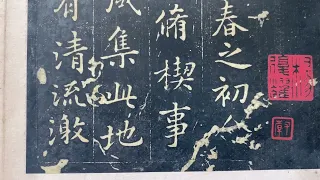 春之初
脩稧事
咸集此地
有清流激